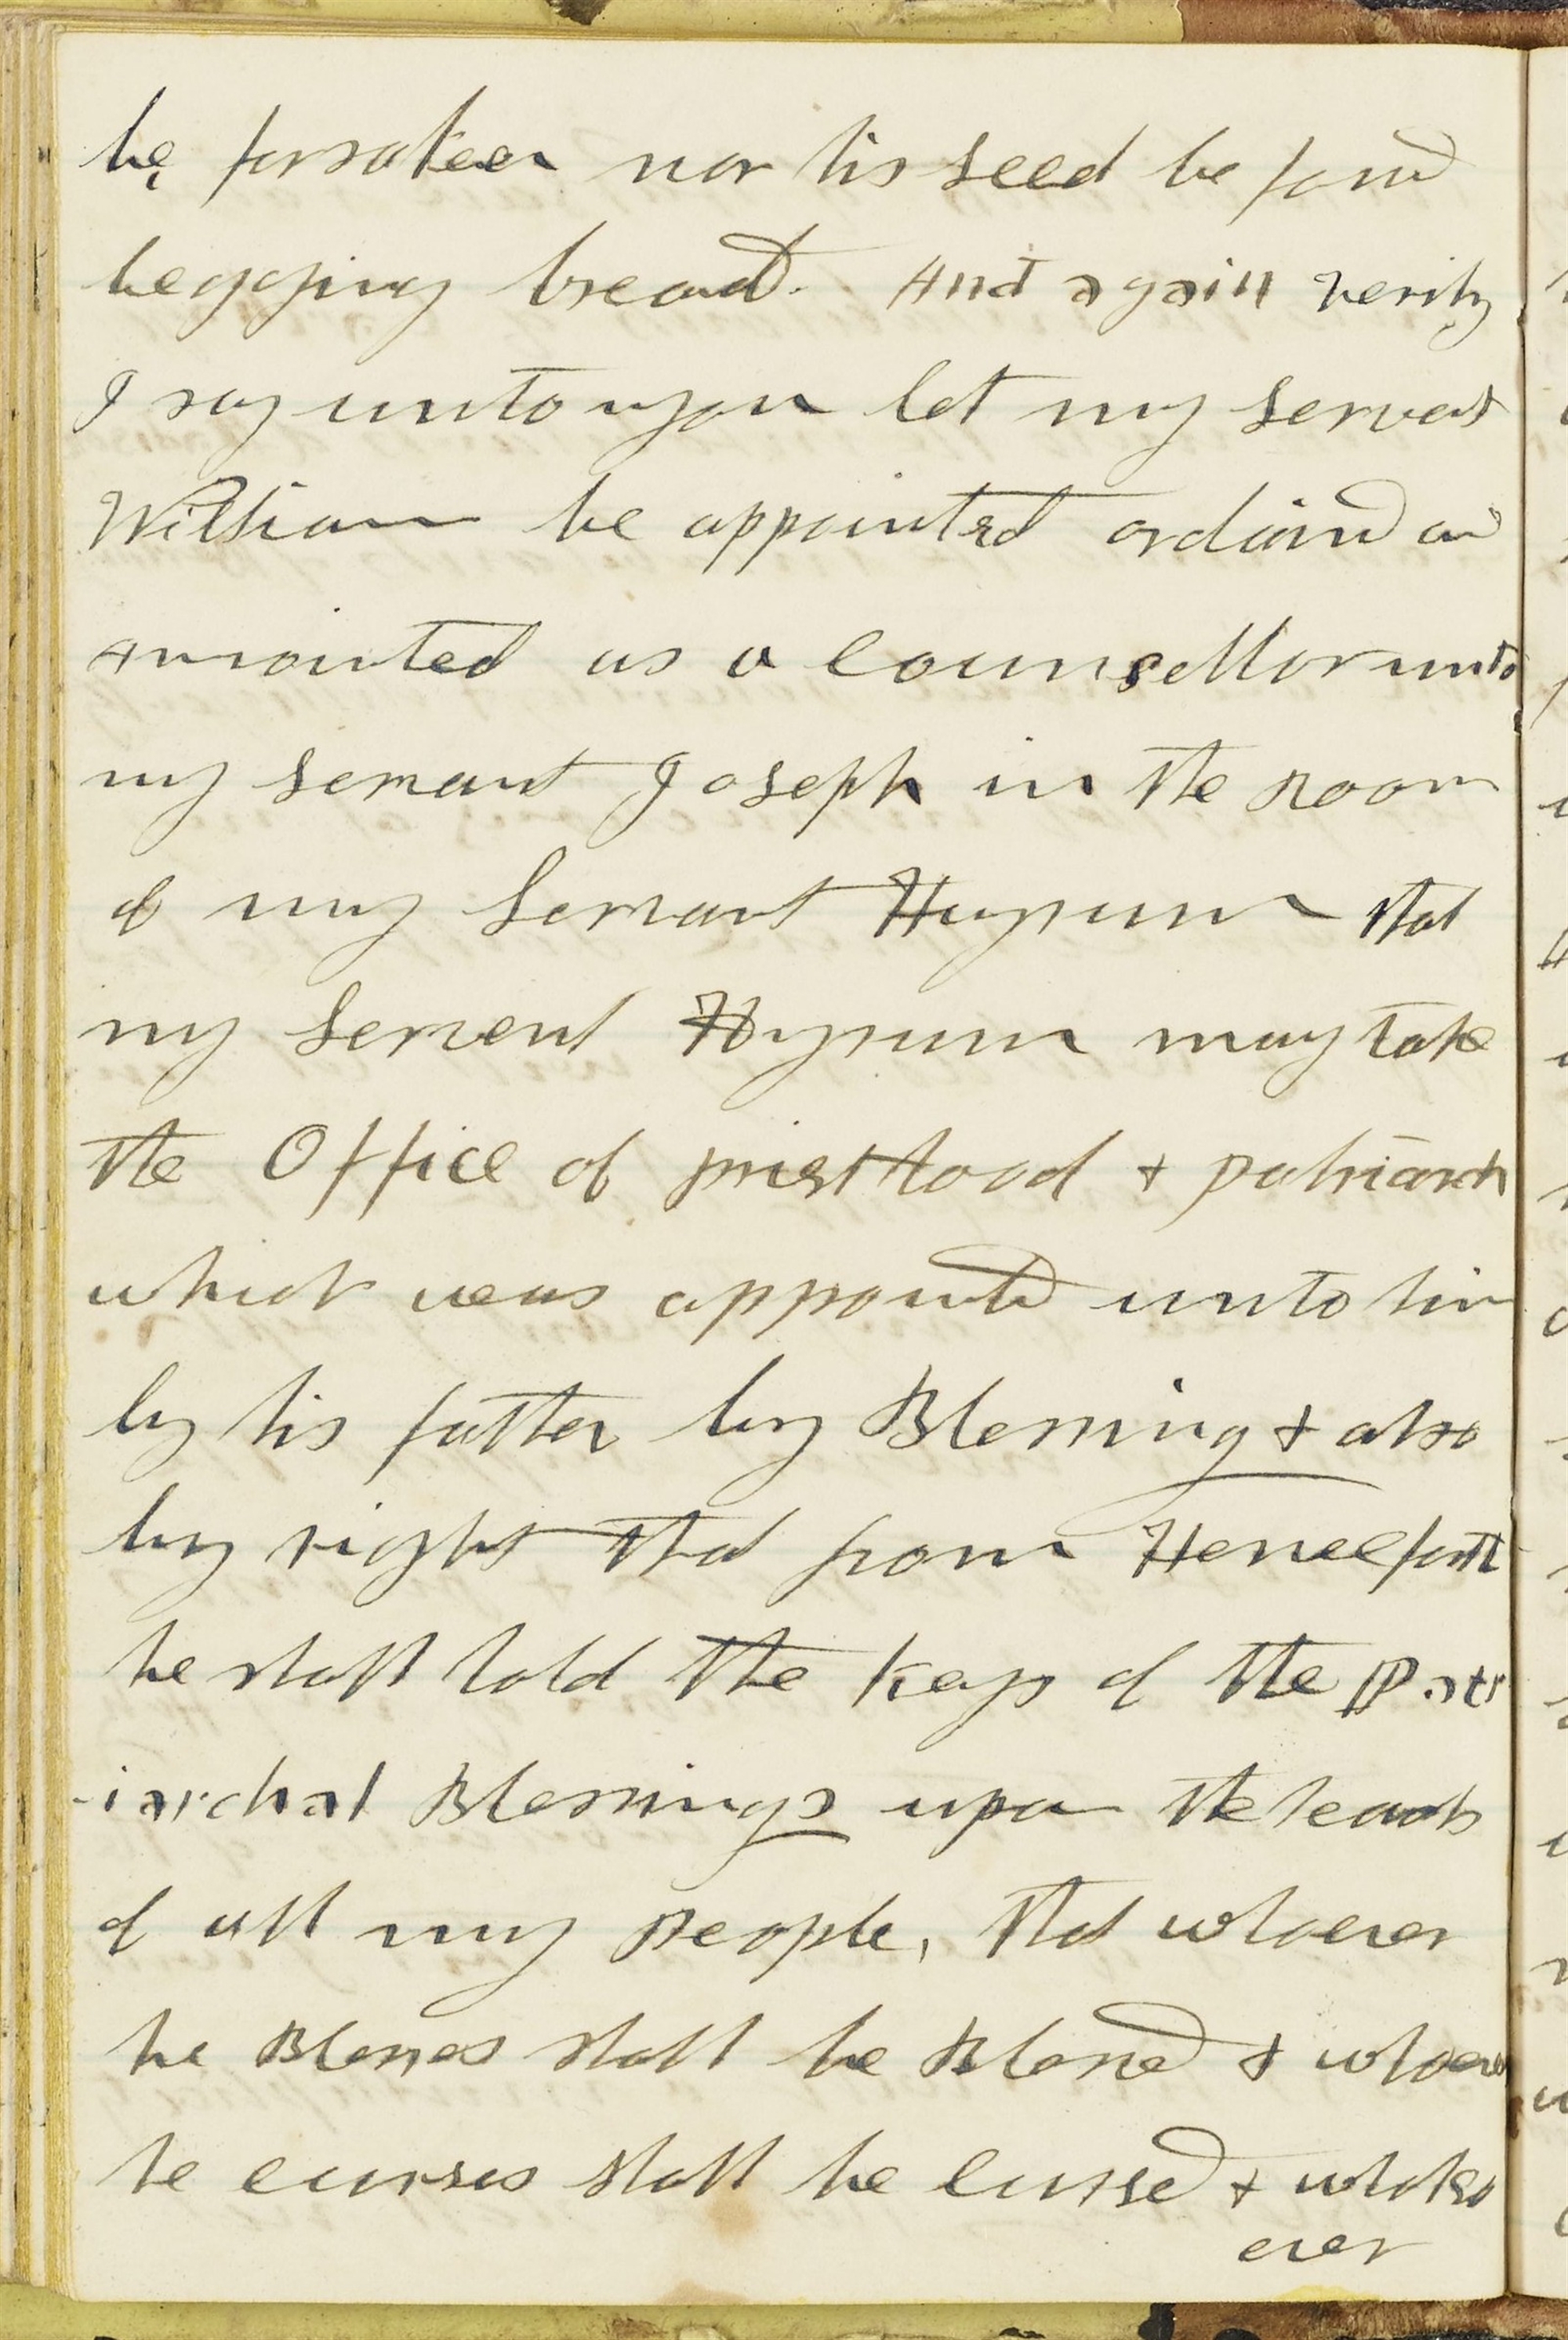 be forsaken nor his seed be found
begging bread. And again verily
I say unto you let my servant
William be appointed ordaind and
annointed as a Counsellor unto
my servant Joseph in the room
of my Servant Hyrum that
my Servent Hyrum may take
the Office of priesthood & patriarch
which was appointd unto him
by his father by Blessing & also
by right that from Henceforth
he shall hold the keys of the Patr
-iarchal Blessings upon the heads
of all my people, that whoever
he Blesses shall be Blessed & whoever
he curses shall be cursed & whatso
ever